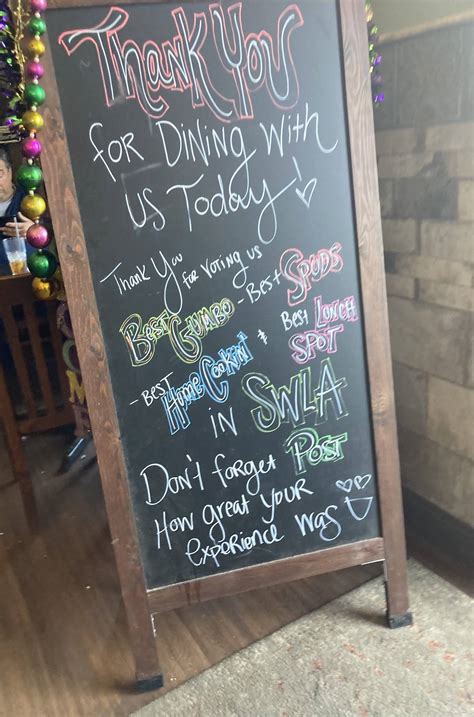 Thank You
for Dining With
us Today!
Thank You
for Voting us
Best Gumbo - Best Spuds
- Best Home Cookin' & Best Lunch Spot
in SWLA
Don't forget Post
How great your
experience was